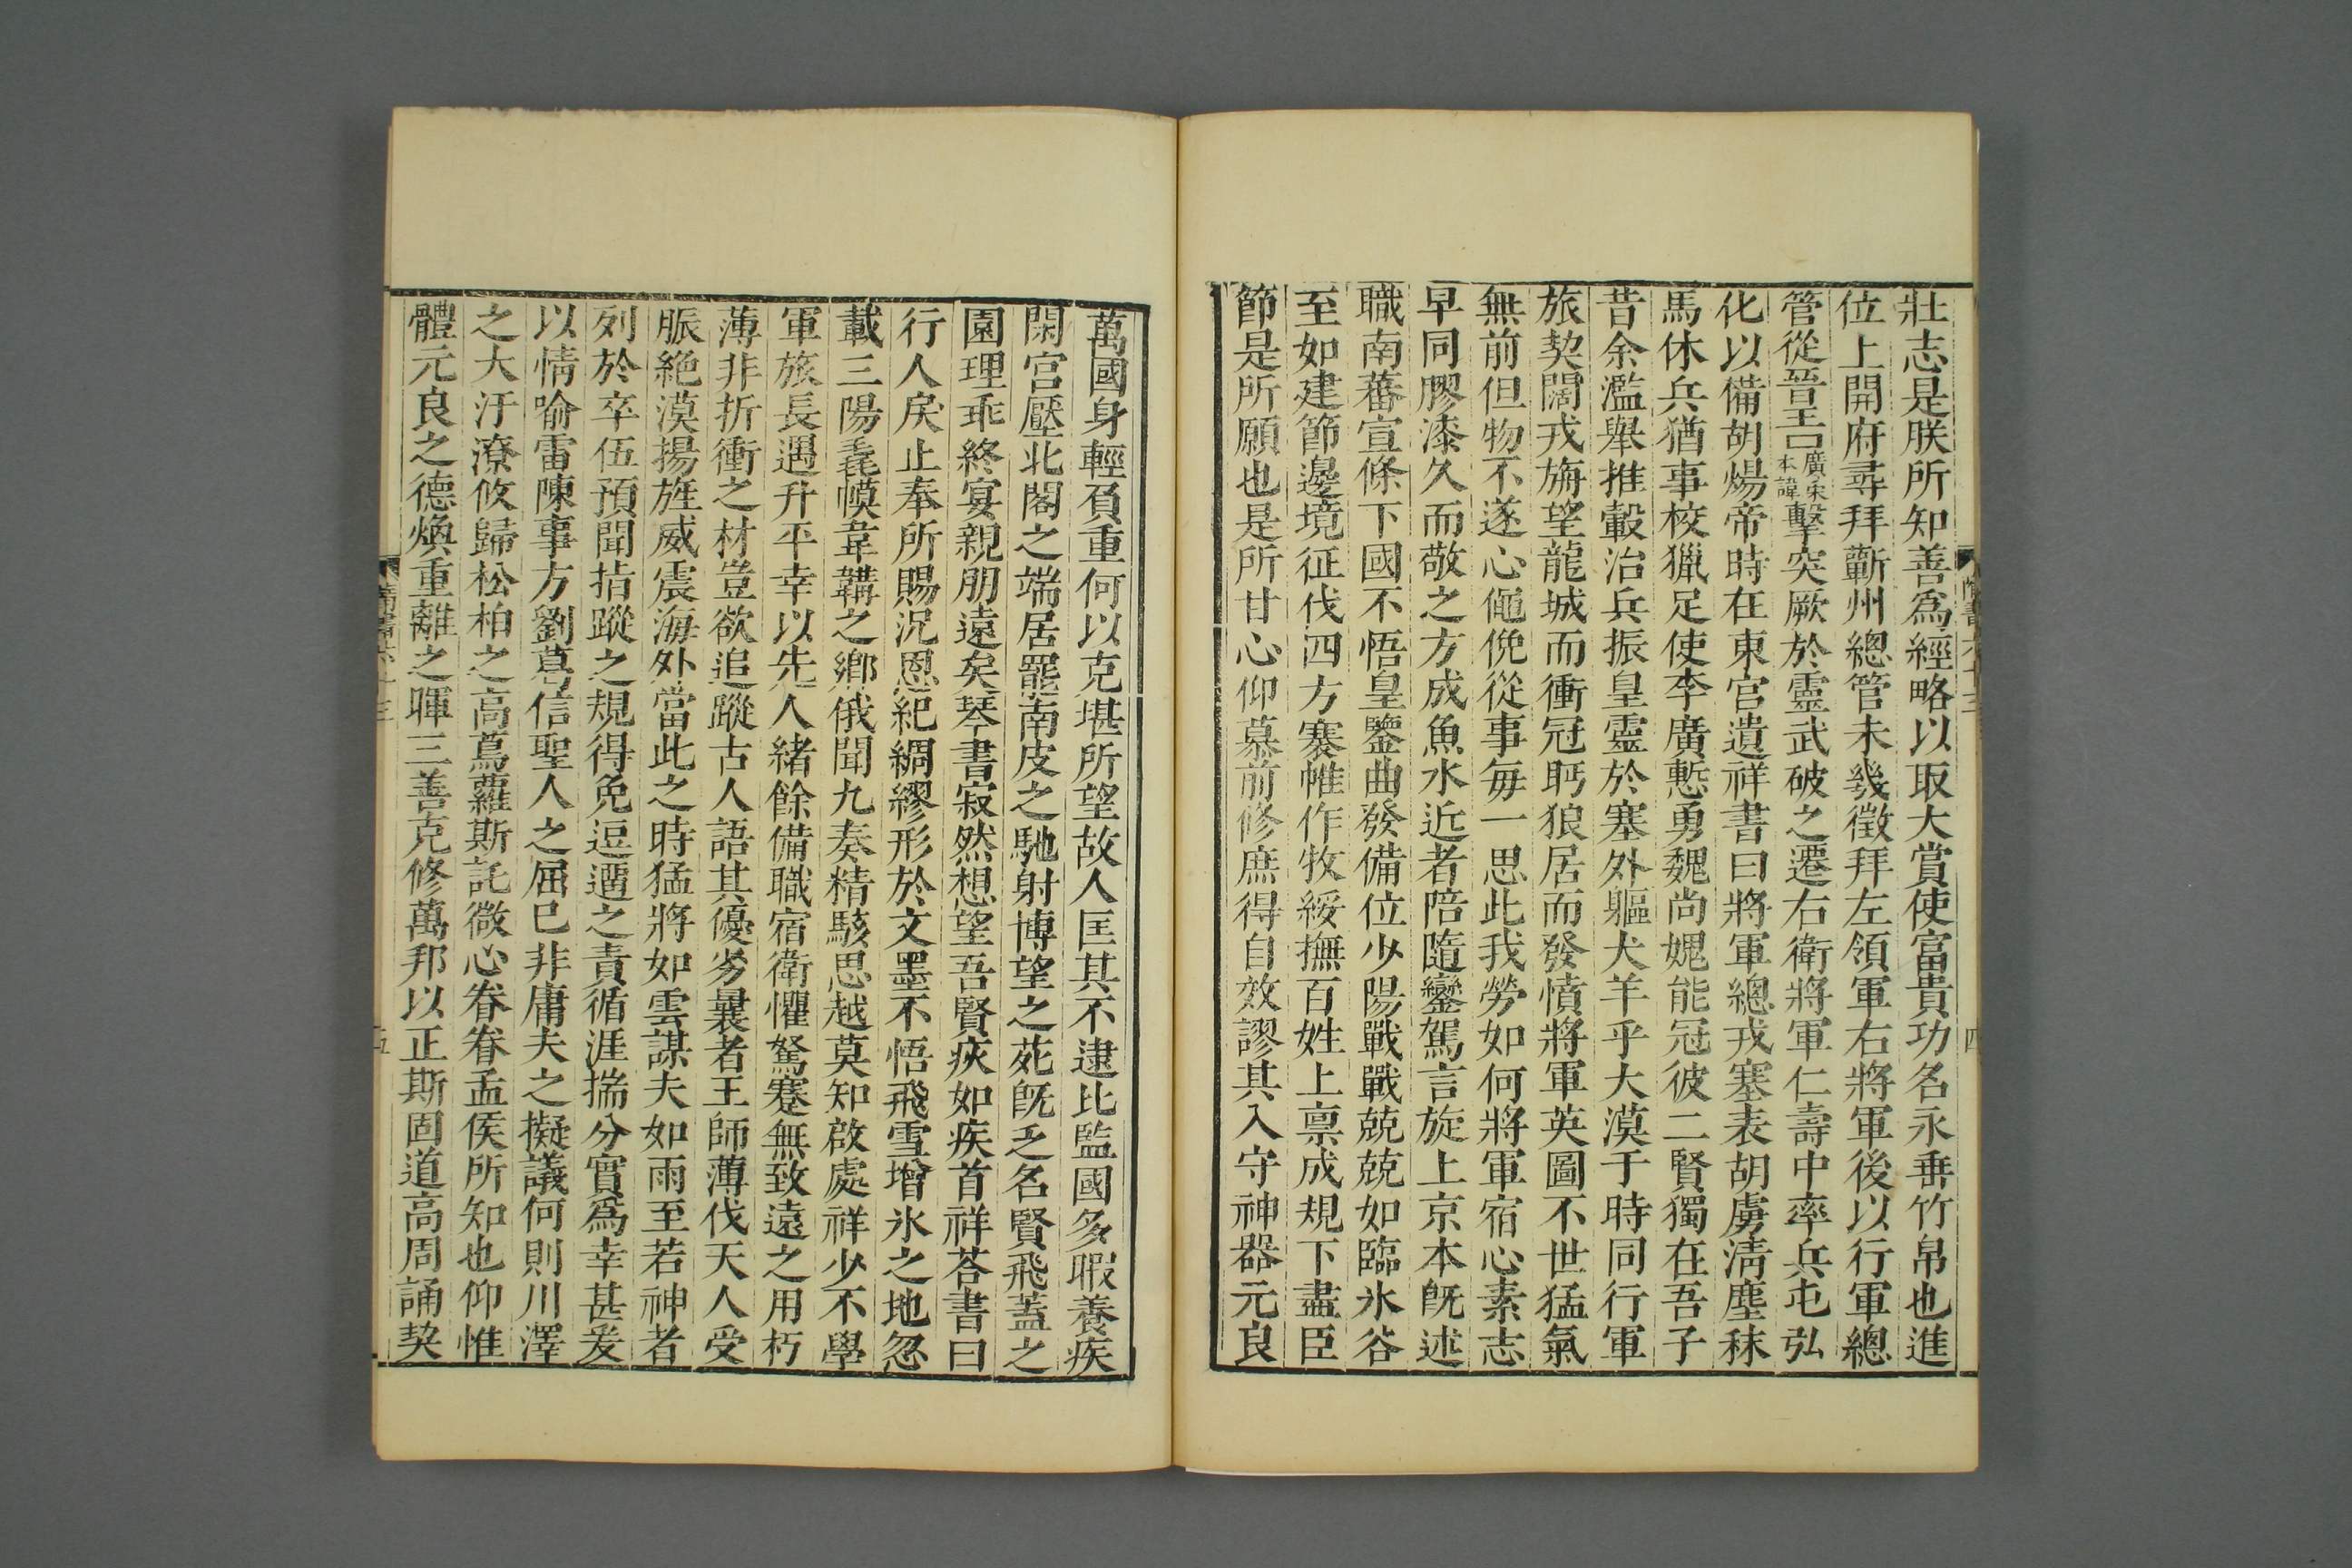 壯志是朕所知善爲經略以取大賞使富貴功名永垂竹帛也進
位上開府尋拜蘄州總管未幾徵拜左領軍右將軍後以行軍總
管從晉王廣宋本諱擊突厥於靈武破之遷右衛將軍仁壽中率兵屯弘
化以備胡煬帝時在東宮遺祥書曰將軍總戎塞表胡虜清塵秣
馬休兵猶事校獵足使李廣慙勇魏尚媿能冠彼二賢獨在吾子
昔余濫舉推轂治兵振皇靈於塞外驅犬羊乎大漠于時同行軍
旅契闊戎旃望龍城而衝冠眄狼居而發憤將軍英圖不世猛氣
無前但物不遂心僶俛從事每一思此我勞如何將軍宿心素志
早同膠漆久而敬之方成魚水近者陪隨鑾駕言旋上京本旣述
職南蕃宣條下國不悟皇鑒曲發備位少陽戰戰兢兢如臨氷谷
至如建節邊境征伐四方褰帷作牧綏撫百姓上禀成規下盡臣
節是所願也是所甘心仰慕前修庶得自效謬其入守神器元良
隋書六十三
四
萬國身輕負重何以克堪所望故人匡其不逮比監國多暇養疾
閑宮壓北閣之端居罷南皮之馳射博望之苑旣乏名賢飛蓋之
園理乖終宴親朋遠矣琴書寂然想望吾賢疢如疾首祥荅書曰
行人戾止奉所賜況恩紀綢繆形於文墨不悟飛雪增氷之地忽
載三陽毳幙韋韝之鄉俄聞九奏精駭思越莫知啟處祥少不學
軍旅長遇升平幸以先人緒餘備職宿衛懼駑蹇無致遠之用朽
薄非折衝之材豈欲追蹤古人語其優劣曩者王師薄伐天人受
脤絶漠揚旌威震海外當此之時猛將如雲謀夫如雨至若神者
列於卒伍預聞指蹤之規得免逗遛之責循涯揣分實爲幸甚爰
以情喻雷陳事方劉葛信聖人之屈巳非庸夫之擬議何則川澤
之大汙潦攸歸松柏之高蔦蘿斯託微心眷眷孟侯所知也仰惟
體元良之德煥重離之暉三善克修萬邦以正斯固道高周誦契
隋書六十三
五